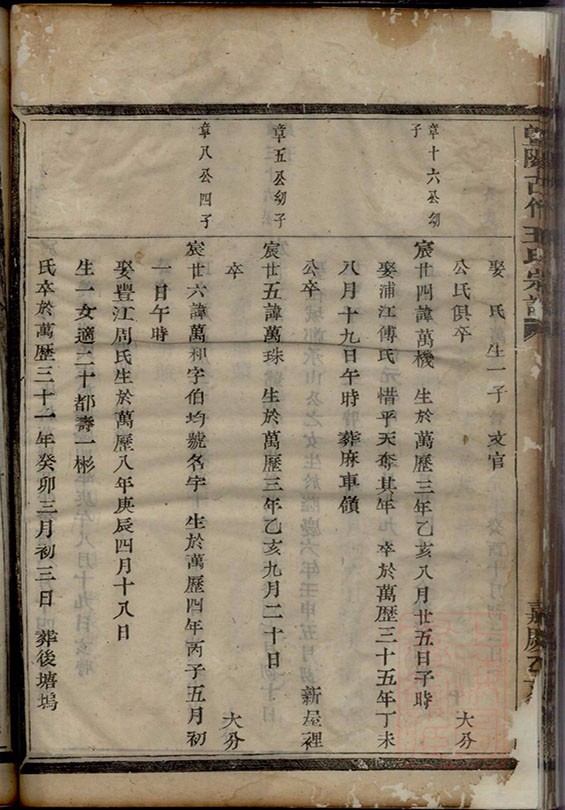 暨陽古竹王氏宗譜
嘉慶乙
娶 氏 生一子 文官
章十六公幼子
公氏俱卒 大分
宸廿四諱萬機 生於萬歷三年乙亥八月廿五日子時
娶浦江傅氏 惜乎天奪其年 卒於萬歷三十五年丁未
八月十九日午時 葬麻車嶺
公卒 新屋裡
章五公幼子
宸廿五諱萬珠 生於萬歷三年乙亥九月二十日
卒 大分
章八公四子
宸廿六諱萬和字伯均號名宇 生於萬歷四年丙子五月初
一日午時
娶豐江周氏生於萬歷八年庚辰四月十八日
生一女適二十都壽一彬
氏卒於萬歷三十一年癸卯三月初三日 葬後塘塢